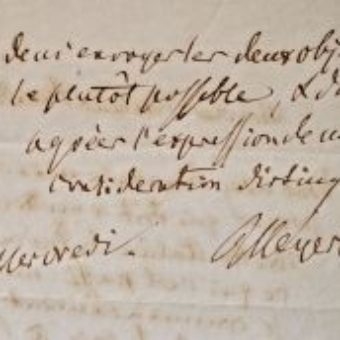 de m'envoyer les deux obj
le plutôt possible, & d'
agréer l'expression de m
considération disting
Mercredi. GMeyer